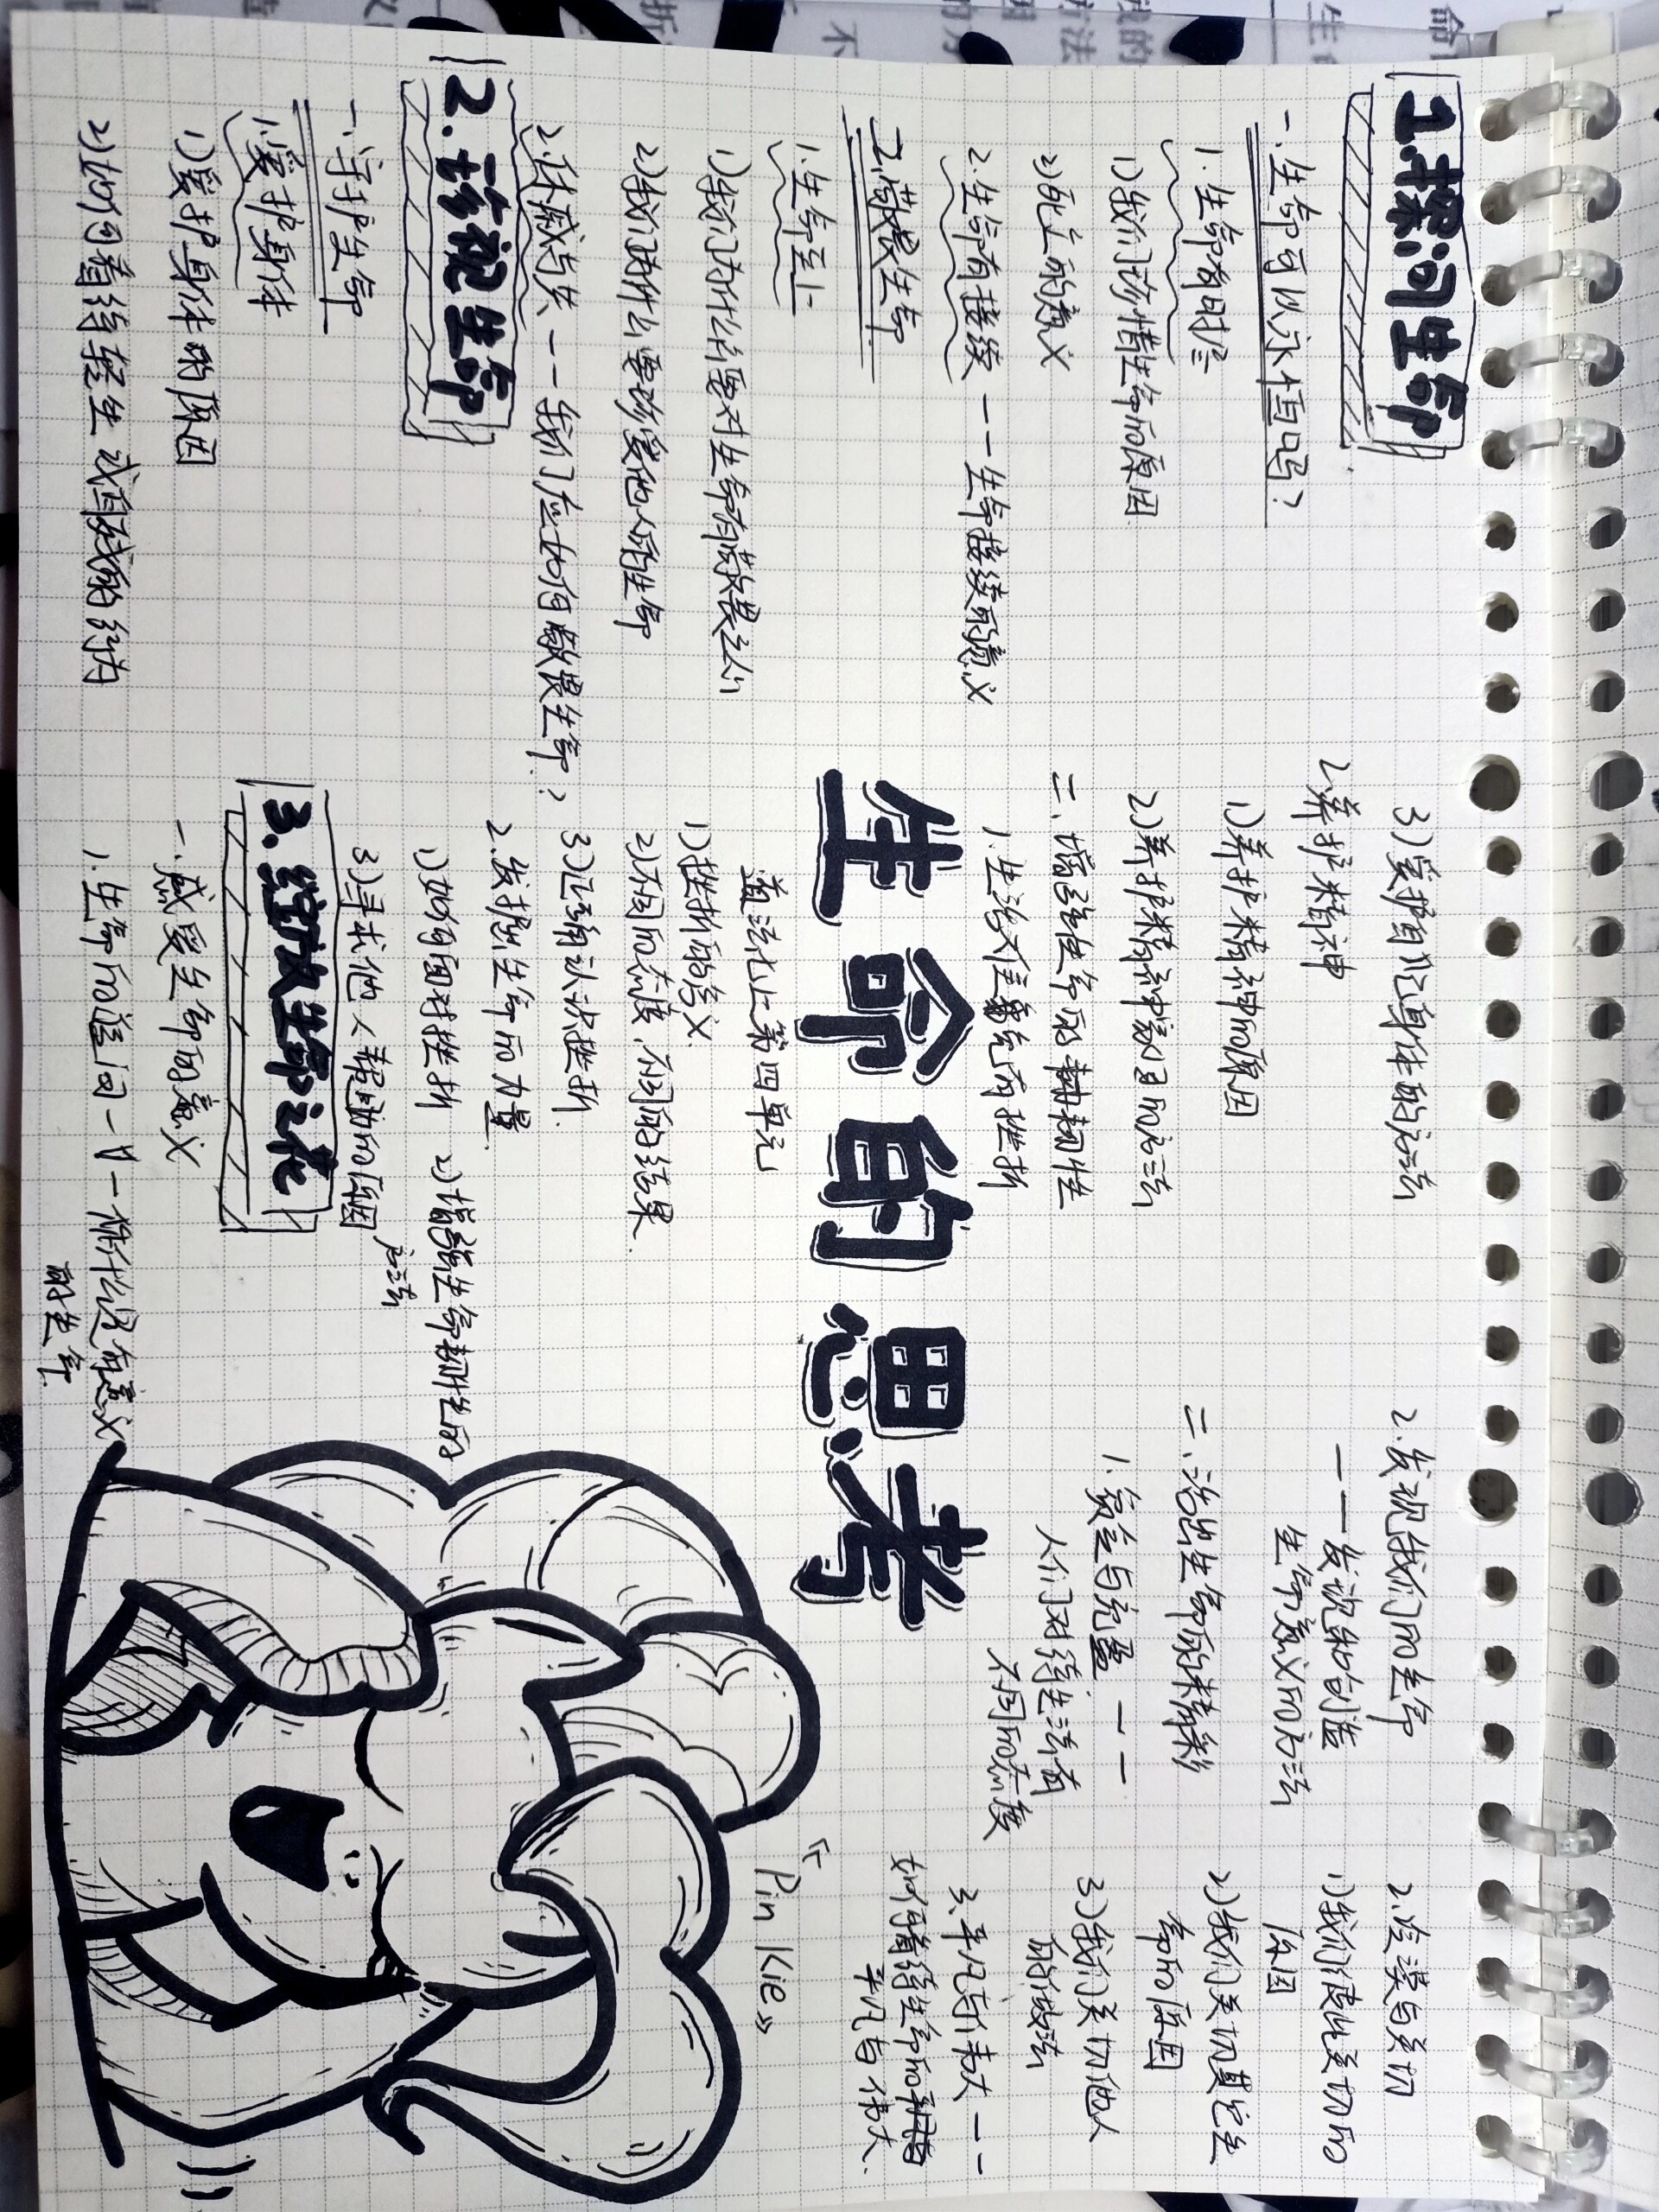 1.探问生命
一.生命可以永恒吗?
1.生命有时尽
1)我们珍惜生命的原因
2)死亡的意义
2.生命有接续——生命接续的意义
二.敬畏生命
1.生命至上
1)我们为什么要对生命有敬畏之心
2)我们为什么要珍爱他人的生命
2.休戚与共——我们应如何敬畏生命?
2.珍视生命
一.守护生命
1.爱护身体
1)爱护身体的原因
2)如何看待轻生或自残的行为
3)爱护自己身体的方法
2.养护精神
1)养护精神的原因
2)养护精神家园的方法
二.增强生命的韧性
1.生活不是总有挫折
生命的思考
道法七上第四单元
1)挫折的含义
2)不同的态度,不同的结果.
3)正确认识挫折.
2.发掘生命的力量
1)如何面对挫折
2)增强生命韧性的方法
3)寻求他人帮助的原因
3.绽放生命之花
一.感受生命的意义
1.生命的追问——什么是有意义的生命.
2.发现我们的生命
——发现和创造
生命意义的方法
二.活出生命的精彩
1.贫乏与充盈——
人们对待生活有
不同的态度
2.冷漠与关切
1)我们彼此关切的
原因
2)我们关切其它生
命的原因
3)我们关切他人
的做法
3.平凡与伟大——
如何看待生命的
平凡与伟大.
《Pin Kie》